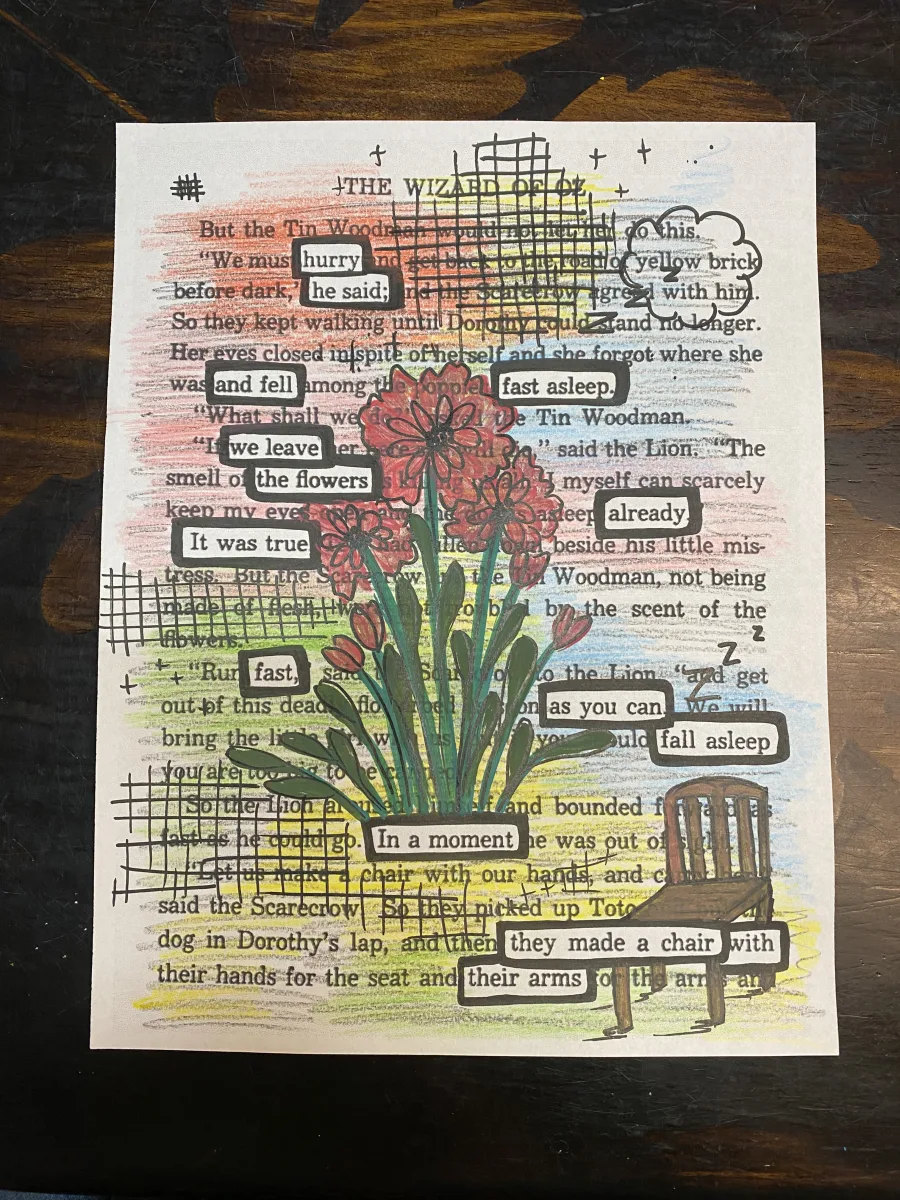 THE WIZARD OF OZ
But the Tin Woodman would not let her do this.
"We must hurry and get back to the road of yellow brick
before dark," he said; and the Scarecrow agreed with him.
So they kept walking until Dorothy could stand no longer.
Her eyes closed in spite of herself and she forgot where she
was and fell among the poppies, fast asleep.
"What shall we do?" the Tin Woodman.
"If we leave her here will die," said the Lion. "The
smell of the flowers is killing I myself can scarcely
keep my eyes open and the dog asleep already
It was true had fallen down beside his little mis-
tress. But the Scarecrow and the Tin Woodman, not being
made of flesh, were not by the scent of the
flowers.
"Run fast, said the to the Lion "and get
out of this deadly flower bed on as you can. We will
bring the little with us you could fall asleep
you are too big to be carried
So the Lion aroused himself and bounded forward as
fast as he could go. In a moment he was out of sight
"Let us make a chair with our hands, and carry her
said the Scarecrow So they picked up Toto
dog in Dorothy's lap, and then they made a chair with
their hands for the seat and their arms for the arms and
Z
Z
Z
z
Z
Z